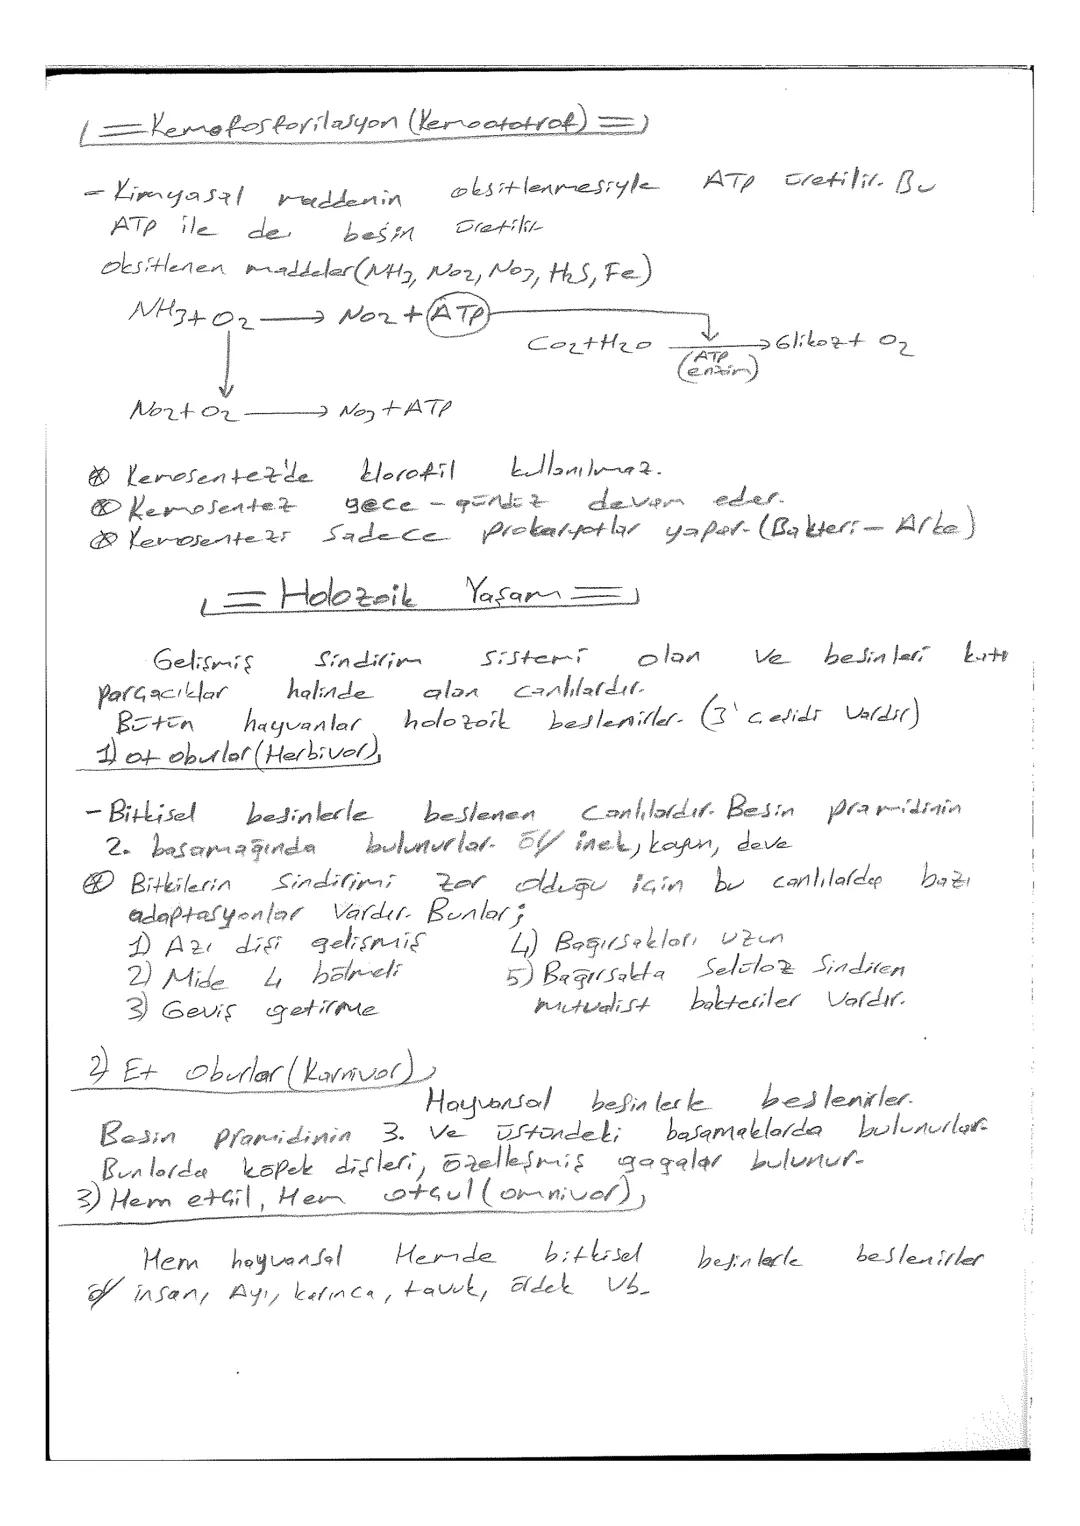 = Kemofosforilasyon (Kemoototrof) =
- Kimyasal maddenin oksitlenmesiyle ATP üretilir. Bu
ATP ile de besin üretilir
oksitlenen maddeler (NH3, NO2, NO3, H2S, Fe)
NH3 + O2 → NO2 + ATP
CO2 + H2O → Glikoz + O2
(ATP
enzim)
NO2 + O2 → NO3 + ATP
⊛ Kemosentez'de klorofil kullanılmaz.
⊛ Kemosentez gece - gündüz devam eder.
⊛ Kemosentezi Sadece prokaryotlar yapar. (Bakteri - Arke)
= Holozoik Yaşam =
Gelişmiş Sindirim Sistemi olan ve besinleri katı
parçacıklar halinde alan canlılardır.
Bütün hayvanlar holozoik beslenirler. (3 çeşidi vardır)
1) ot oburlar (Herbivor),
- Bitkisel besinlerle beslenen canlılardır. Besin pramidinin
2. basamağında bulunurlar. ör/ inek, koyun, deve
⊛ Bitkilerin Sindirimi zor olduğu için bu canlılarda bazı
adaptasyonlar Vardır. Bunlar;
1) Azı dişi gelişmiş
2) Mide 4 bölmeli
3) Geviş getirme
4) Bağırsakları uzun
5) Bağırsakta Selüloz Sindiren
mutualist bakteriler Vardır.
2) Et oburlar (Karnivor),
Hayvansal besinlerle beslenirler.
Besin pramidinin 3. ve üstündeki basamaklarda bulunurlar.
Bunlarda köpek dişleri, özelleşmiş gagalar bulunur.
3) Hem etçil, Hem otçul (omnivor),
Hem hayvansal Hemde bitkisel besinlerle beslenirler
ör/ insan, Ayı, karınca, tavuk, ördek vb.